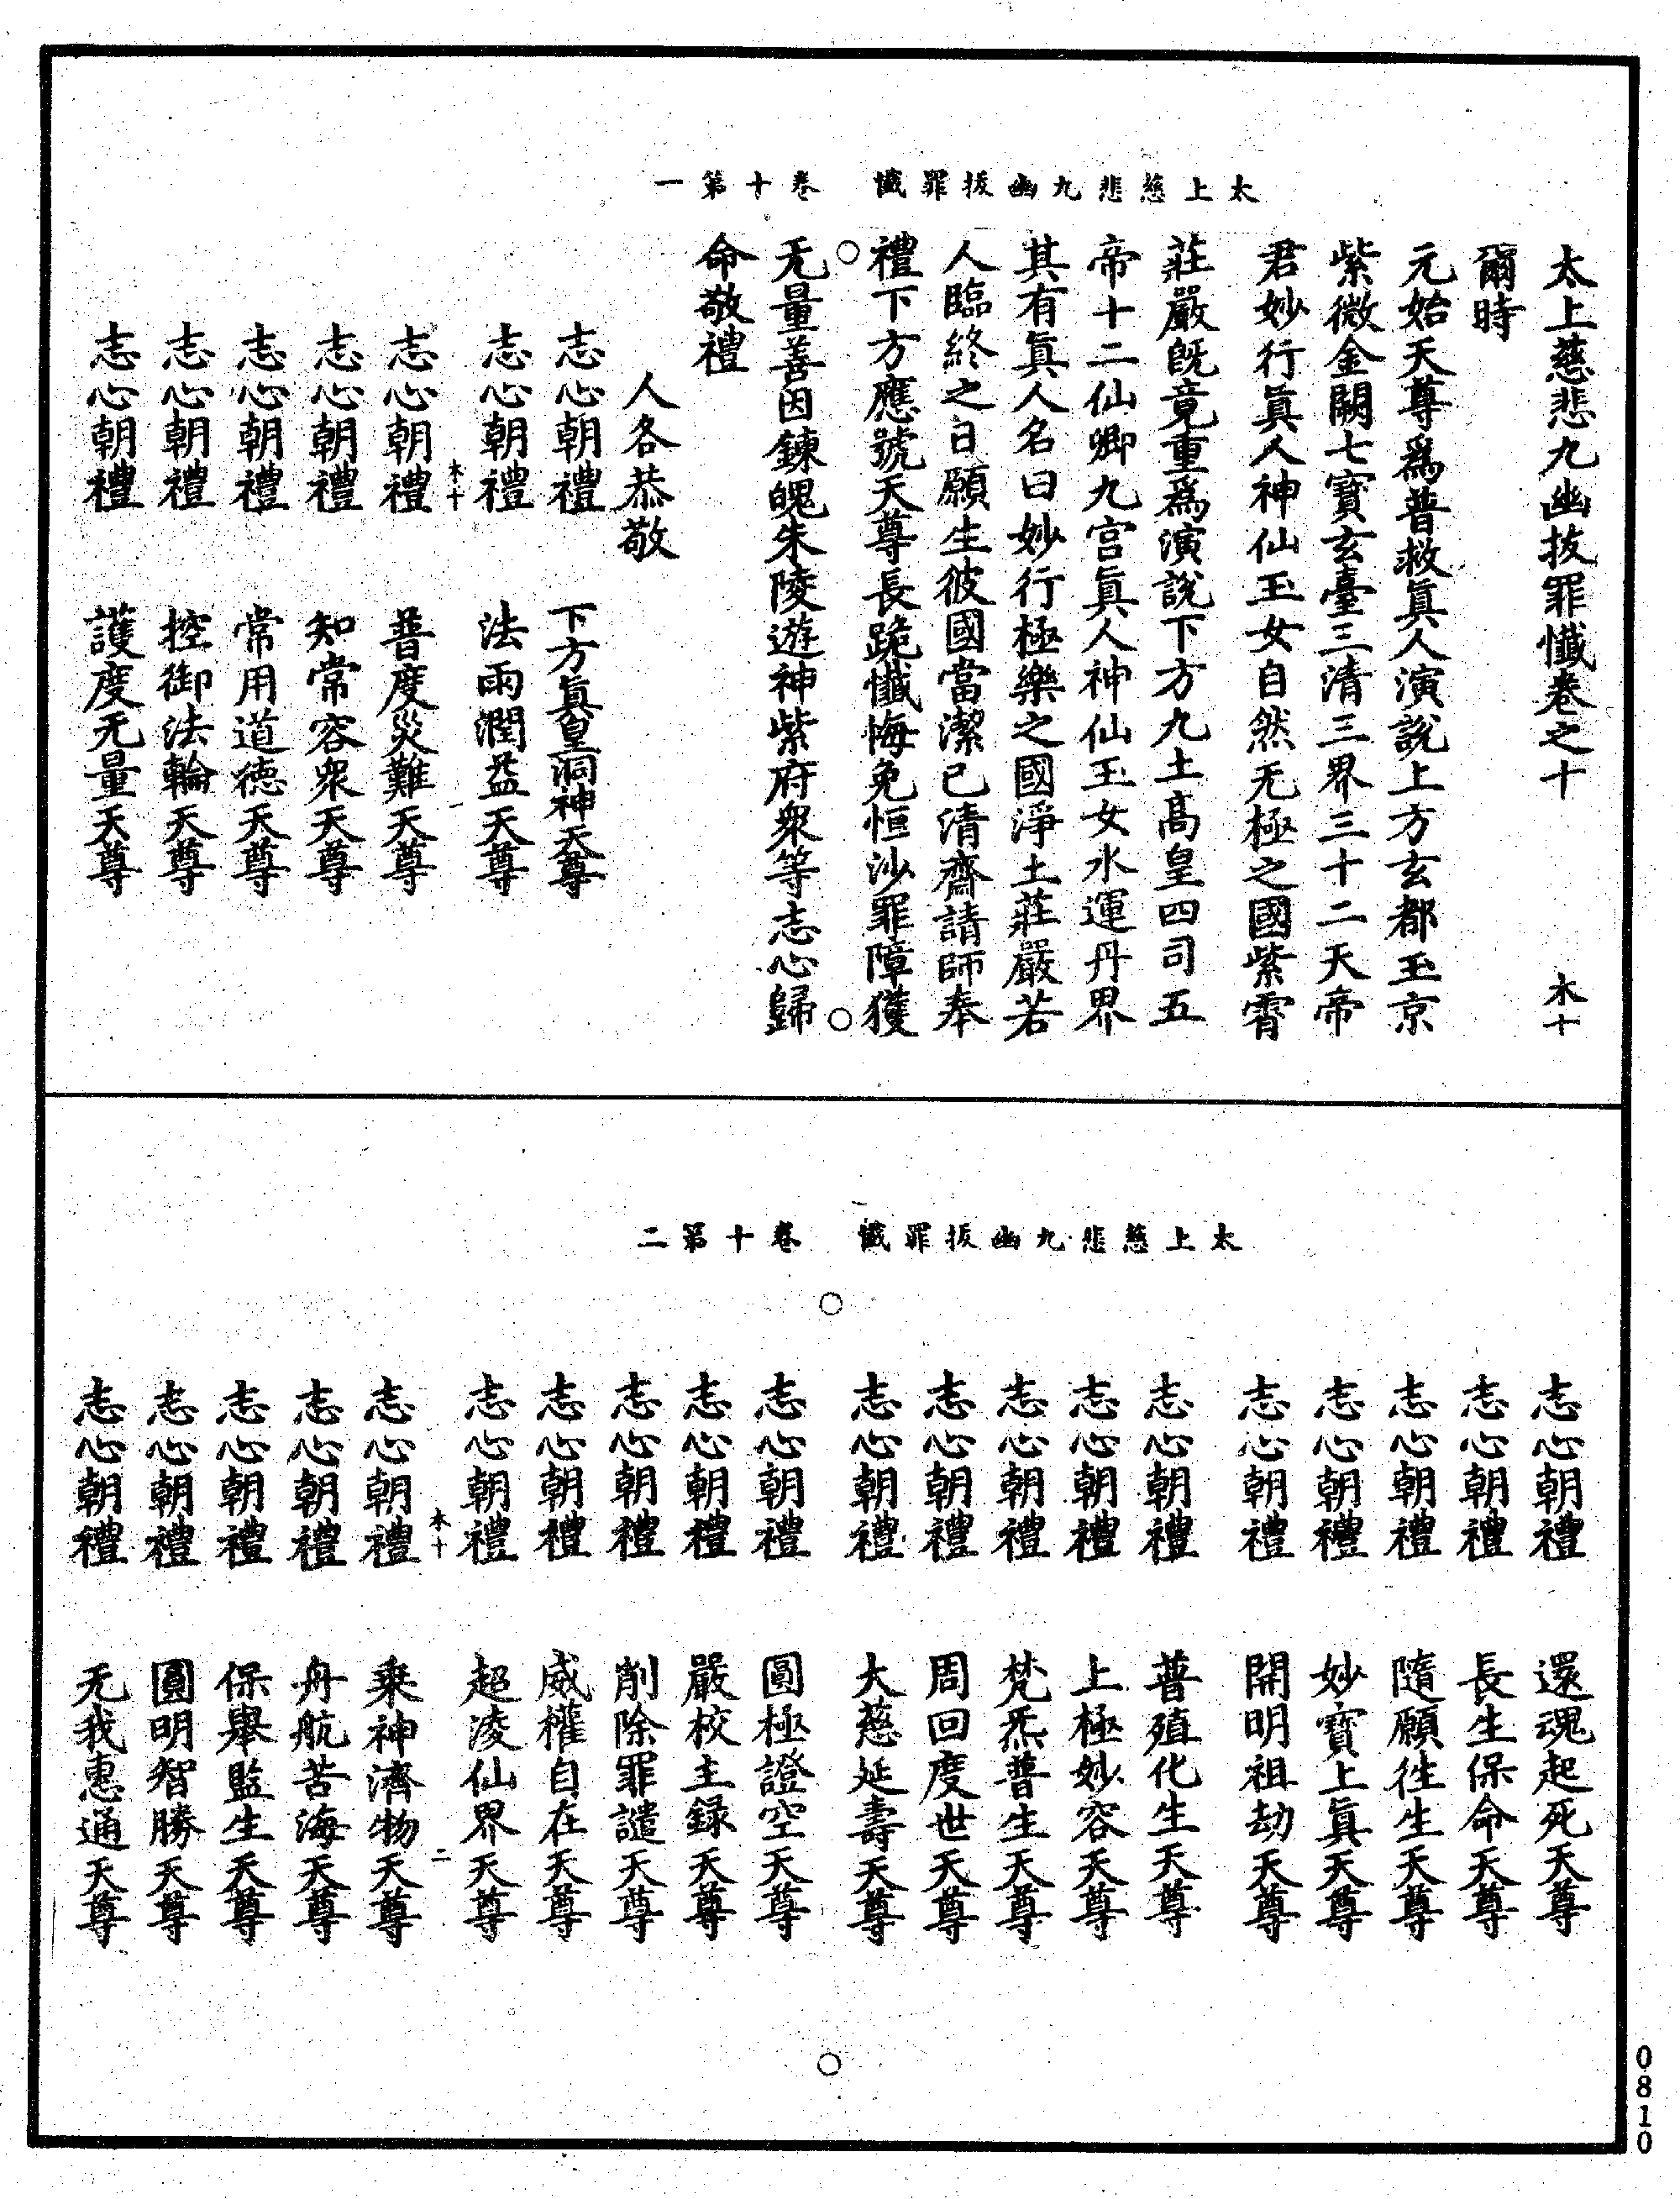 太上慈悲九幽拔罪懺　卷十第一
太上慈悲九幽拔罪懺卷之十　木十
爾時
元始天尊爲普救眞人演說上方玄都玉京
紫微金闕七寶玄臺三清三界三十二天帝
君妙行眞人神仙玉女自然无極之國紫霄
莊嚴旣竟重爲演說下方九土高皇四司五
帝十二仙卿九宮眞人神仙玉女水運丹界
其有眞人名曰妙行極樂之國淨土莊嚴若
人臨終之日願生彼國當潔己清齋請師奉
禮下方應號天尊長跪懺悔免恒沙罪障獲
无量善因鍊魄朱陵遊神紫府衆等志心歸
命敬禮
人各恭敬
志心朝禮　下方眞皇洞神天尊
志心朝禮　法雨潤益天尊
木十　一
志心朝禮　普度災難天尊
志心朝禮　知常容衆天尊
志心朝禮　常用道德天尊
志心朝禮　控御法輪天尊
志心朝禮　護度无量天尊
太上慈悲九幽拔罪懺　卷十第二
志心朝禮　還魂起死天尊
志心朝禮　長生保命天尊
志心朝禮　隨願往生天尊
志心朝禮　妙寶上眞天尊
志心朝禮　開明祖劫天尊
志心朝禮　普殖化生天尊
志心朝禮　上極妙容天尊
志心朝禮　梵炁普生天尊
志心朝禮　周回度世天尊
志心朝禮　大慈延壽天尊
志心朝禮　圓極證空天尊
志心朝禮　嚴校主錄天尊
志心朝禮　削除罪譴天尊
志心朝禮　威權自在天尊
志心朝禮　超淩仙界天尊
木十　二
志心朝禮　乘神濟物天尊
志心朝禮　舟航苦海天尊
志心朝禮　保舉監生天尊
志心朝禮　圓明智勝天尊
志心朝禮　无我惠通天尊
0810